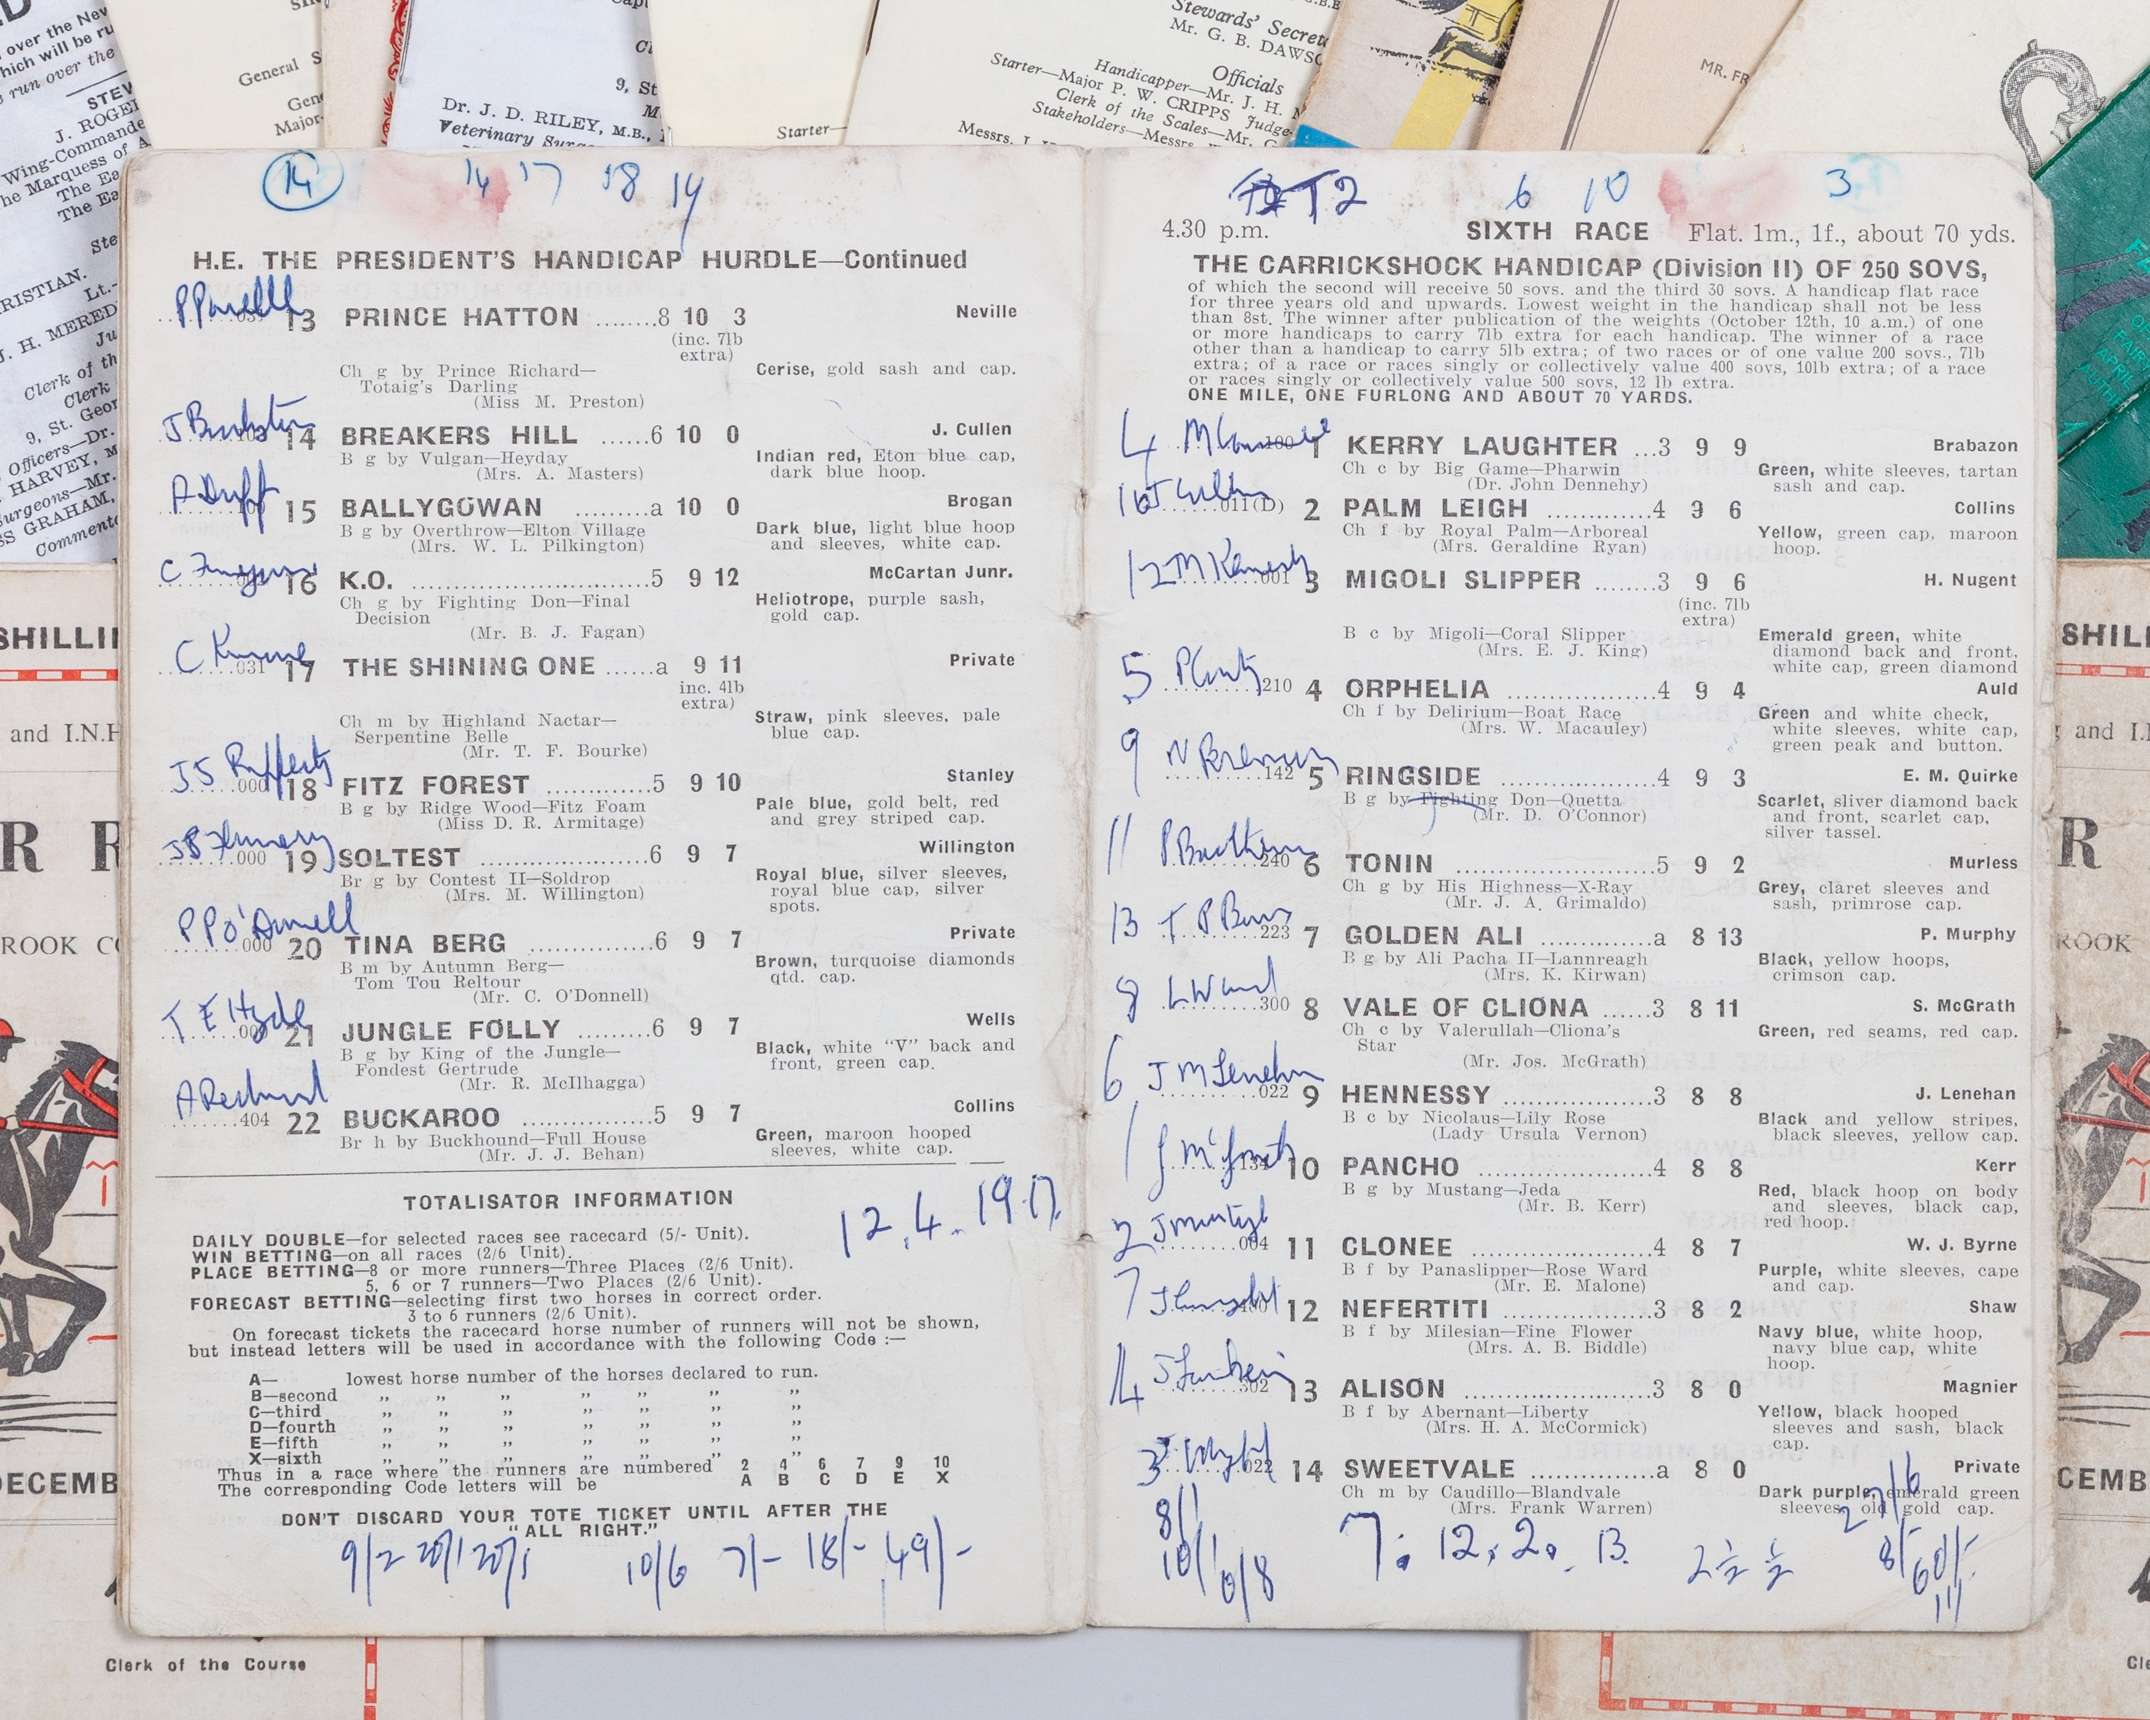 over the Nev
which will be ru
run over the
STEW
J. ROGE
Wing-Commande
The Marquess of A
The Ea
The Ea
Ste
CHRISTIAN.
Lt.-
J. H. MERED
Ju
Clerk of th
Clerk
9, St. Geor
Officers—Dr.
HARVEY, M
Surgeons—Mr.
SS GRAHAM,
Commento
General S
Gen
Major-
9, St
M
Dr. J. D. RILEY, M.B.,
Veterinary Surge
Starter—
Stewards' Secret
Mr. G. B. DAWSO
Officials
Handicapper—Mr. J. H.
Starter—Major P. W. CRIPPS Judge-
Clerk of the Scales—Mr. G
Stakeholders—Messrs.
Messrs. J.
MR. FR
14
14 17 18 19
H.E. THE PRESIDENT'S HANDICAP HURDLE—Continued
P Powell
13 PRINCE HATTON ........8 10 3 Neville
(inc. 7lb
extra)
Ch g by Prince Richard— Cerise, gold sash and cap.
Totaig's Darling
(Miss M. Preston)
14 BREAKERS HILL ......6 10 0 J. Cullen
B g by Vulgan—Heyday Indian red, Eton blue cap,
(Mrs. A. Masters) dark blue hoop.
A Duff
15 BALLYGOWAN .........a 10 0 Brogan
B g by Overthrow—Elton Village Dark blue, light blue hoop
(Mrs. W. L. Pilkington) and sleeves, white cap.
16 K.O. ..............................5 9 12 McCartan Junr.
Ch g by Fighting Don—Final Heliotrope, purple sash,
Decision gold cap.
(Mr. B. J. Fagan)
C Kinane
031 17 THE SHINING ONE ......a 9 11 Private
inc. 4lb
extra)
Ch m by Highland Nactar— Straw, pink sleeves, pale
Serpentine Belle blue cap.
(Mr. T. F. Bourke)
J S Rafferty
000 18 FITZ FOREST .............5 9 10 Stanley
B g by Ridge Wood—Fitz Foam Pale blue, gold belt, red
(Miss D. R. Armitage) and grey striped cap.
000 19 SOLTEST ......................6 9 7 Willington
Br g by Contest II—Soldrop Royal blue, silver sleeves,
(Mrs. M. Willington) royal blue cap, silver
spots.
P P O'Donnell
000 20 TINA BERG ................6 9 7 Private
B m by Autumn Berg— Brown, turquoise diamonds
Tom Tou Reltour qtd. cap.
(Mr. C. O'Donnell)
T E Hyde
21 JUNGLE FOLLY .........6 9 7 Wells
B g by King of the Jungle— Black, white "V" back and
Fondest Gertrude front, green cap.
(Mr. R. McIlhagga)
A Redmond
404 22 BUCKAROO ................5 9 7 Collins
Br h by Buckhound—Full House Green, maroon hooped
(Mr. J. J. Behan) sleeves, white cap.
TOTALISATOR INFORMATION
12.4.19.17.
DAILY DOUBLE—for selected races see racecard (5/- Unit).
WIN BETTING—on all races (2/6 Unit).
PLACE BETTING—8 or more runners—Three Places (2/6 Unit).
5, 6 or 7 runners—Two Places (2/6 Unit).
FORECAST BETTING—selecting first two horses in correct order.
3 to 6 runners (2/6 Unit).
On forecast tickets the racecard horse number of runners will not be shown,
but instead letters will be used in accordance with the following Code :—
A— lowest horse number of the horses declared to run.
B—second ,, ,, ,, ,, ,, ,, ,,
C—third ,, ,, ,, ,, ,, ,, ,,
D—fourth ,, ,, ,, ,, ,, ,, ,,
E—fifth ,, ,, ,, ,, ,, ,, ,,
X—sixth ,, ,, ,, ,, ,, ,, ,,
Thus in a race where the runners are numbered 2 4 6 7 9 10
The corresponding Code letters will be A B C D E X
DON'T DISCARD YOUR TOTE TICKET UNTIL AFTER THE
"ALL RIGHT."
9/2 20/1 20/1 10/6 7/- 18/- 49/-
T2 6 10 3
4.30 p.m. SIXTH RACE Flat. 1m., 1f., about 70 yds.
THE CARRICKSHOCK HANDICAP (Division II) OF 250 SOVS,
of which the second will receive 50 sovs. and the third 30 sovs. A handicap flat race
for three years old and upwards. Lowest weight in the handicap shall not be less
than 8st. The winner after publication of the weights (October 12th, 10 a.m.) of one
or more handicaps to carry 7lb extra for each handicap. The winner of a race
other than a handicap to carry 5lb extra; of two races or of one value 200 sovs., 7lb
extra; of a race or races singly or collectively value 400 sovs, 10lb extra; of a race
or races singly or collectively value 500 sovs, 12 lb extra.
ONE MILE, ONE FURLONG AND ABOUT 70 YARDS.
4
100 1 KERRY LAUGHTER ...3 9 9 Brabazon
Ch c by Big Game—Pharwin Green, white sleeves, tartan
(Dr. John Dennehy) sash and cap.
10
011(D) 2 PALM LEIGH .............4 9 6 Collins
Ch f by Royal Palm—Arboreal Yellow, green cap, maroon
(Mrs. Geraldine Ryan) hoop.
12 M Kennedy
001 3 MIGOLI SLIPPER ........3 9 6 H. Nugent
(inc. 7lb
extra)
B c by Migoli—Coral Slipper Emerald green, white
(Mrs. E. J. King) diamond back and front,
white cap, green diamond
5
210 4 ORPHELIA ..................4 9 4 Auld
Ch f by Delirium—Boat Race Green and white check,
(Mrs. W. Macauley) white sleeves, white cap,
green peak and button.
9 N Brennan
142 5 RINGSIDE ...................4 9 3 E. M. Quirke
B g by Fighting Don—Quetta Scarlet, sliver diamond back
(Mr. D. O'Connor) and front, scarlet cap,
silver tassel.
11
240 6 TONIN .........................5 9 2 Murless
Ch g by His Highness—X-Ray Grey, claret sleeves and
(Mr. J. A. Grimaldo) sash, primrose cap.
13 T P Burns
223 7 GOLDEN ALI .............a 8 13 P. Murphy
B g by Ali Pacha II—Lannreagh Black, yellow hoops,
(Mrs. K. Kirwan) crimson cap.
8 L Ward
300 8 VALE OF CLIONA ......3 8 11 S. McGrath
Ch c by Valerullah—Cliona's Green, red seams, red cap.
Star
(Mr. Jos. McGrath)
6 J M Lenehan
022 9 HENNESSY ..................3 8 8 J. Lenehan
B c by Nicolaus—Lily Rose Black and yellow stripes,
(Lady Ursula Vernon) black sleeves, yellow cap.
1
10 PANCHO ....................4 8 8 Kerr
B g by Mustang—Jeda Red, black hoop on body
(Mr. B. Kerr) and sleeves, black cap,
red hoop.
2
004 11 CLONEE .....................4 8 7 W. J. Byrne
B f by Panaslipper—Rose Ward Purple, white sleeves, cape
(Mr. E. Malone) and cap.
7
12 NEFERTITI .................3 8 2 Shaw
B f by Milesian—Fine Flower Navy blue, white hoop,
(Mrs. A. B. Biddle) navy blue cap, white
hoop.
14
302 13 ALISON ......................3 8 0 Magnier
B f by Abernant—Liberty Yellow, black hooped
(Mrs. H. A. McCormick) sleeves and sash, black
cap.
3
022 14 SWEETVALE ...............a 8 0 Private
Ch m by Caudillo—Blandvale Dark purple, emerald green
(Mrs. Frank Warren) sleeves, old gold cap.
27/6
8/1 7. 12. 2. 13. 2½ ½ 8/-
10/1 6/8 60/-
11/
SHILLI
and I.N.H
R R
ROOK CO
DECEMB
Clerk of the Course
SHILL
and I.
R
ROOK
CEMB
Cle